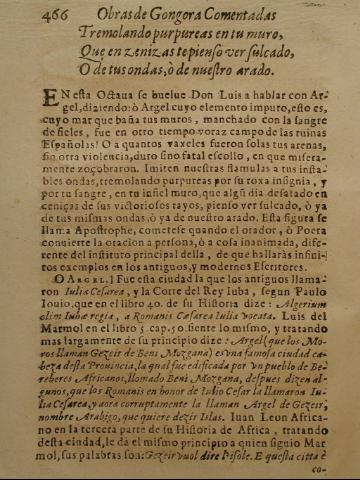 466 Obras de Gongora Comentadas
Tremolando purpureas en tu muro,
Que en zenizas te pienso ver sulcado,
O de tus ondas, ò de nuestro arado.
EN esta Octaua se buelue Don Luis a hablar con Ar-
gel, diziendo: ò Argel cuyo elemento impuro, esto es,
cuyo mar que baña tus muros, manchado con la sangre
de fieles, fue en otro tiempo voraz campo de las ruinas
Españolas! O a quantos vaxeles fueron solas tus arenas,
sin otra violencia, duro sino fatal escollo, en que misera-
mente zoçobraron. Imiten nuestras flamulas a tus insta-
bles ondas, tremolando purpureas por su roxa insignia, y
por tu sangre, en tu infiel muro, que algun dia desatado en
ceniças de sus victoriosos rayos, pienso ver sulcado, ò ya
de tus mismas ondas, ò ya de nuestro arado. Esta figura se
llama Apostrophe, cometese quando el orador, ò Poeta
conuierte la oracion a persona, ò a cosa inanimada, dife-
rente del instituto principal della, de que hallaràs infini-
tos exemplos en los antiguos, y modernos Escritores.
O ARGEL.] Fue esta ciudad la que los antiguos llama-
ron Iulia Cesarea, y la Corte del Rey Iuba, segun Paulo
Iouio, que en el libro 40. de su Historia dize: Algerium
olim Iubæ regia, a Romanis Cæsarea Iulia vocata. Luis del
Marmol en el libro 5. cap. 50. siente lo mismo, y tratando
mas largamente de su principio dize: Argel (que los Mo-
ros llaman Gezeir de Beni Mozgana) es vna famosa ciudad ca-
beza desta Prouincia, la qual fue edificada por vn pueblo de Be-
reberes Africanos, llamado Beni Mozgana, despues dizen al-
gunos, que los Romanos en honor de Iulio Cesar la llamaron Iu-
lia Cesarea, y aora corruptamente la llaman Argel de Gezeir,
nombre Arabigo, que quiere dezir Islas. Iuan Leon Africa-
no en la tercera parte de su Historia de Africa, tratando
desta ciudad, le dà el mismo principio a quien siguio Mar-
mol, sus palabras son: Gezeir vuol dire Isole. E questa città è
co-